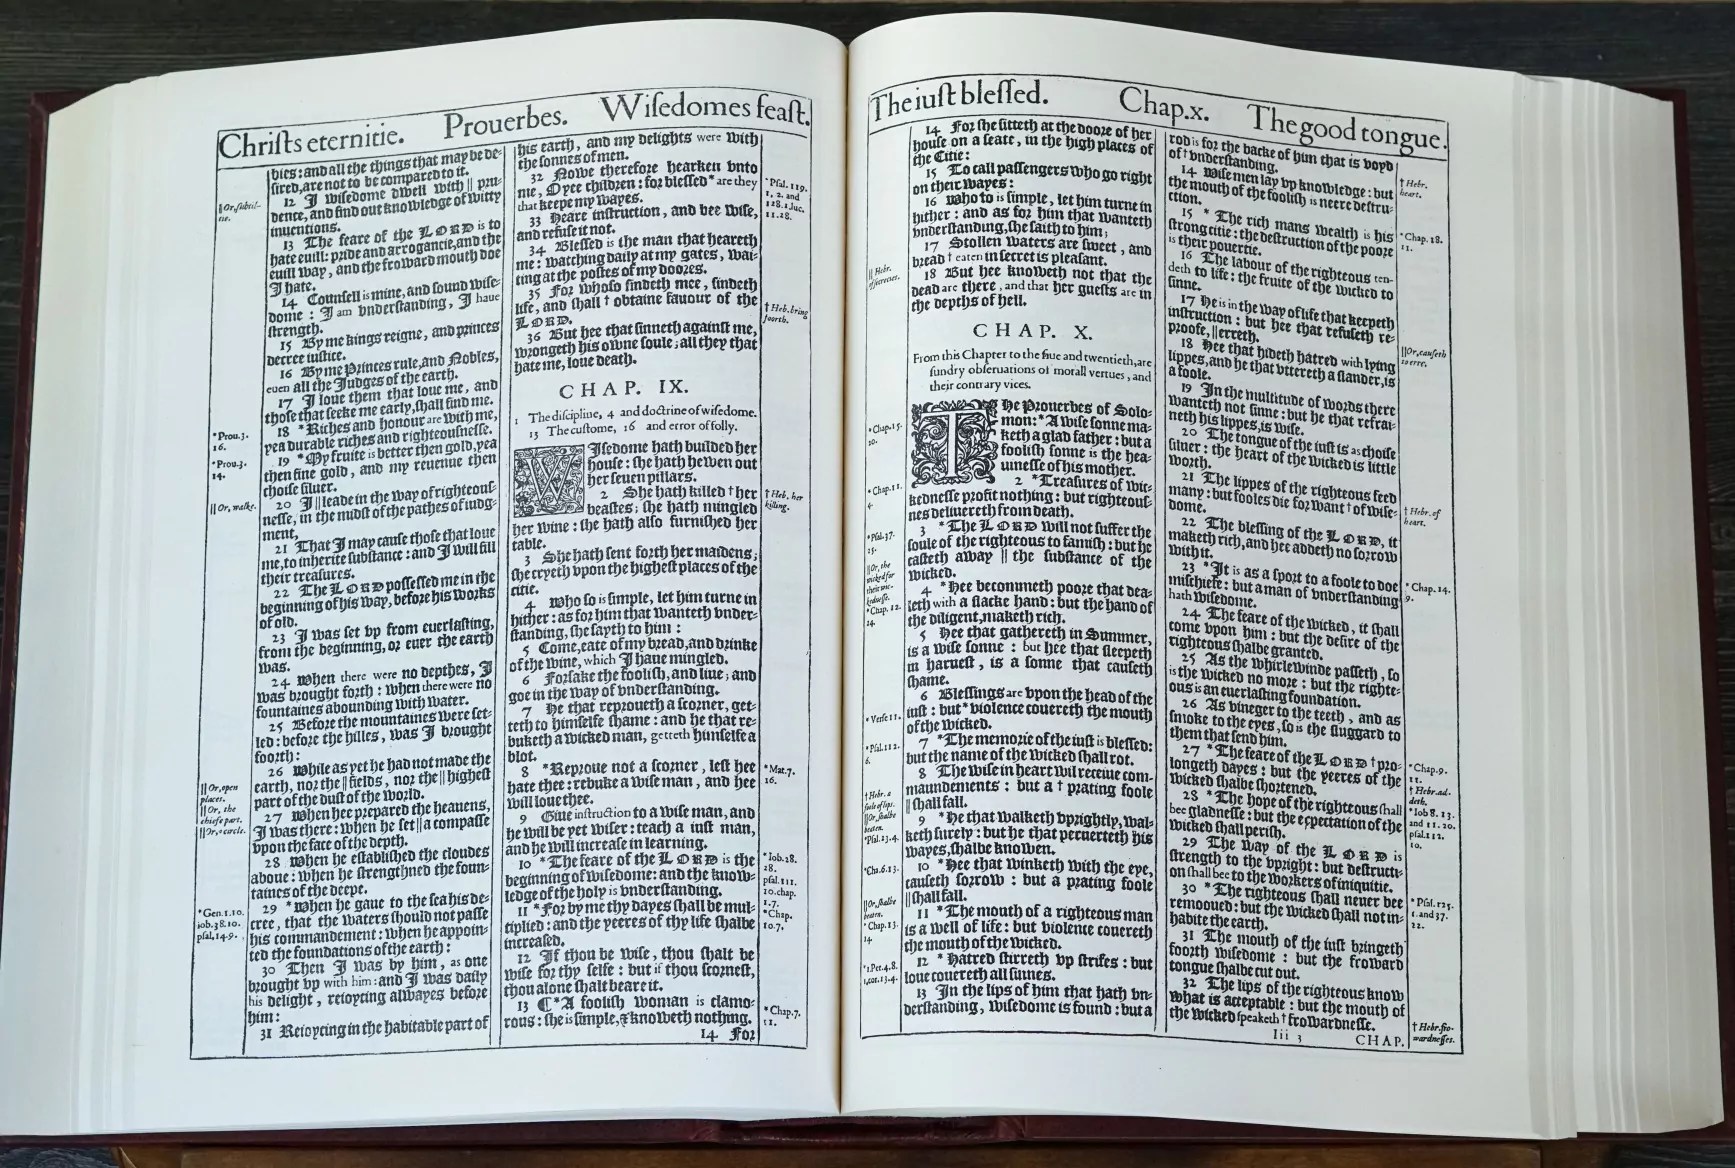 Chriſts eternitie. Prouerbes. Wiſedomes feaſt.
bies: and all the things that may be de-
ſired, are not to be compared to it.
12 I wiſedome dwell with || pru-
dence, and find out knowledge of witty
inuentions.
13 The feare of the LORD is to
hate euill: pride and arrogancie, and the
euill way, and the froward mouth doe
I hate.
14 Counſell is mine, and ſound wiſe-
dome: I am vnderſtanding, I haue
ſtrength.
15 By me kings reigne, and princes
decree iuſtice.
16 By me Princes rule, and Nobles,
euen all the Iudges of the earth.
17 I loue them that loue me, and
thoſe that ſeeke me early, ſhall find me.
18 *Riches and honour are with me,
yea durable riches and righteouſneſſe.
19 *My fruite is better then gold, yea
then fine gold, and my reuenue then
choiſe ſiluer.
20 I || leade in the way of righteouſ-
neſſe, in the midſt of the pathes of iudg-
ment,
21 That I may cauſe thoſe that loue
me, to inherite ſubſtance: and I will fill
their treaſures.
22 The LORD poſſeſſed me in the
beginning of his way, before his works
of old.
23 I was ſet vp from euerlaſting,
from the beginning, or euer the earth
was.
24 When there were no depthes, I
was brought forth: when there were no
fountaines abounding with water.
25 Before the mountaines were ſet-
led: before the hilles, was I brought
foorth:
26 While as yet he had not made the
earth, nor the || fields, nor the || higheſt
part of the duſt of the world.
27 When hee prepared the heauens,
I was there: when he ſet || a compaſſe
vpon the face of the depth.
28 When he eſtabliſhed the cloudes
aboue: when he ſtrengthned the foun-
taines of the deepe.
29 *When he gaue to the ſea his de-
cree, that the waters ſhould not paſſe
his commandement: when he appoin-
ted the foundations of the earth:
30 Then I was by him, as one
brought vp with him: and I was daily
his delight, reioycing alwayes before
him:
31 Reioycing in the habitable part of
|| Or, ſubtil-
tie.
*Prou.3.
16.
*Prou.3.
14.
|| Or, walke.
|| Or, open
places.
|| Or, the
chiefe part.
|| Or, a circle.
*Gen.1.10.
iob.38.10.
pſal.14.9.
his earth, and my delights were with
the ſonnes of men.
32 Nowe therefore hearken vnto
me, O yee children: for bleſſed *are they
that keepe my wayes.
33 Heare inſtruction, and bee wiſe,
and refuſe it not.
34 Bleſſed is the man that heareth
me: watching daily at my gates, wai-
ting at the poſtes of my doores.
35 For whoſo findeth mee, findeth
life, and ſhall † obtaine fauour of the
LORD.
36 But hee that ſinneth againſt me,
wrongeth his owne ſoule; all they that
hate me, loue death.
CHAP. IX.
1 The diſcipline, 4 and doctrine of wiſedome.
13 The cuſtome, 16 and error of folly.
WIſedome hath builded her
houſe: ſhe hath hewen out
her ſeuen pillars.
2 She hath killed † her
beaſtes; ſhe hath mingled
her wine: ſhe hath alſo furniſhed her
table.
3 She hath ſent forth her maidens;
ſhe cryeth vpon the higheſt places of the
citie.
4 Who ſo is ſimple, let him turne in
hither: as for him that wanteth vnder-
ſtanding, ſhe ſayth to him:
5 Come, eate of my bread, and drinke
of the wine, which I haue mingled.
6 Forſake the fooliſh, and liue; and
goe in the way of vnderſtanding.
7 He that reproueth a ſcorner, get-
teth to himſelfe ſhame: and he that re-
buketh a wicked man, getteth himſelfe a
blot.
8 *Reproue not a ſcorner, leſt hee
hate thee: rebuke a wiſe man, and hee
will loue thee.
9 Giue inſtruction to a wiſe man, and
he will be yet wiſer: teach a iuſt man,
and he will increaſe in learning.
10 *The feare of the LORD is the
beginning of wiſedome: and the know-
ledge of the holy is vnderſtanding.
11 *For by me thy dayes ſhall be mul-
tiplied: and the yeeres of thy life ſhalbe
increaſed.
12 If thou be wiſe, thou ſhalt be
wiſe for thy ſelfe: but if thou ſcorneſt,
thou alone ſhalt beare it.
13 ¶ *A fooliſh woman is clamo-
rous: ſhe is ſimple, & knoweth nothing.
14 For
*Pſal.119.
1, 2. and
128.1. luc.
11.28.
† Heb. bring
foorth.
† Heb. her
killing.
*Mat.7.
16.
*Iob.28.
28.
pſal.111.
10. chap.
1.7.
*Chap.
10.7.
*Chap.7.
11.
The iuſt bleſſed. Chap.x. The good tongue.
14 For ſhe ſitteth at the doore of her
houſe on a ſeate, in the high places of
the Citie:
15 To call paſſengers who go right
on their wayes:
16 Who ſo is ſimple, let him turne in
hither: and as for him that wanteth
vnderſtanding, ſhe ſaith to him;
17 Stollen waters are ſweet, and
bread † eaten in ſecret is pleaſant.
18 But hee knoweth not that the
dead are there, and that her gueſts are in
the depths of hell.
CHAP. X.
From this Chapter to the fiue and twentieth, are
ſundry obſeruations of morall vertues, and
their contrary vices.
THe Prouerbes of Solo-
mon: *A wiſe ſonne ma-
keth a glad father: but a
fooliſh ſonne is the hea-
uineſſe of his mother.
2 *Treaſures of wic-
kedneſſe profit nothing: but righteouſ-
nes deliuereth from death.
3 *The LORD will not ſuffer the
ſoule of the righteous to famiſh: but he
caſteth away || the ſubſtance of the
wicked.
4 *Hee becommeth poore that dea-
leth with a ſlacke hand: but the hand of
the diligent, maketh rich.
5 Hee that gathereth in Summer,
is a wiſe ſonne: but hee that ſleepeth
in harueſt, is a ſonne that cauſeth
ſhame.
6 Bleſſings are vpon the head of the
iuſt: but *violence couereth the mouth
of the wicked.
7 *The memorie of the iuſt is bleſſed:
but the name of the wicked ſhall rot.
8 The wiſe in heart will receiue com-
maundements: but a † prating foole
|| ſhall fall.
9 *He that walketh vprightly, wal-
keth ſurely: but he that peruerteth his
wayes, ſhalbe knowen.
10 *Hee that winketh with the eye,
cauſeth ſorrow: but a prating foole
|| ſhall fall.
11 *The mouth of a righteous man
is a well of life: but violence couereth
the mouth of the wicked.
12 *Hatred ſtirreth vp ſtrifes: but
loue couereth all ſinnes.
13 In the lips of him that hath vn-
derſtanding, wiſedome is found: but a
|| Hebr.
of ſecrecies.
*Chap.15.
20.
*Chap.11.
4.
*Pſal.37.
25.
|| Or, the
wicked for
their wic-
kedneſſe.
*Chap.12.
24.
*Verſe 11.
*Pſal.112.
6.
† Hebr. a
foole of lips.
|| Or, ſhalbe
beaten.
*Pſal.23.4.
*Cha.6.13.
|| Or, ſhalbe
beaten.
*Chap.13.
14.
*1.Pet.4.8.
1.cor.13.4.
rod is for the backe of him that is voyd
of † vnderſtanding.
14 Wiſe men lay vp knowledge: but
the mouth of the fooliſh is neere deſtru-
ction.
15 *The rich mans wealth is his
ſtrong citie: the deſtruction of the poore
is their pouertie.
16 The labour of the righteous ten-
deth to life: the fruite of the wicked to
ſinne.
17 He is in the way of life that keepeth
inſtruction: but hee that refuſeth re-
proofe, || erreth.
18 Hee that hideth hatred with lying
lippes, and he that vttereth a ſlander, is
a foole.
19 In the multitude of words there
wanteth not ſinne: but he that refrai-
neth his lippes, is wiſe.
20 The tongue of the iuſt is as choiſe
ſiluer: the heart of the wicked is little
worth.
21 The lippes of the righteous feed
many: but fooles die for want † of wiſe-
dome.
22 The bleſſing of the LORD, it
maketh rich, and hee addeth no ſorrow
with it.
23 *It is as a ſport to a foole to doe
miſchiefe: but a man of vnderſtanding
hath wiſedome.
24 The feare of the wicked, it ſhall
come vpon him: but the deſire of the
righteous ſhalbe granted.
25 As the whirlewinde paſſeth, ſo
is the wicked no more: but the righte-
ous is an euerlaſting foundation.
26 As vineger to the teeth, and as
ſmoke to the eyes, ſo is the ſluggard to
them that ſend him.
27 *The feare of the LORD † pro-
longeth dayes: but the yeeres of the
wicked ſhalbe ſhortened.
28 *The hope of the righteous ſhall
bee gladneſſe: but the expectation of the
wicked ſhall periſh.
29 The way of the LORD is
ſtrength to the vpright: but deſtructi-
on ſhall bee to the workers of iniquitie.
30 *The righteous ſhall neuer bee
remooued: but the wicked ſhall not in-
habite the earth.
31 The mouth of the iuſt bringeth
foorth wiſedome: but the froward
tongue ſhalbe cut out.
32 The lips of the righteous know
what is acceptable: but the mouth of
the wicked ſpeaketh † frowardneſſe.
Iii 3 CHAP.
† Hebr.
heart.
*Chap.18.
11.
|| Or, cauſeth
to erre.
† Hebr. of
heart.
*Chap.14.
9.
*Chap.9.
11.
† Hebr. ad-
deth.
*Iob 8.13.
and 11.20.
pſal.112.
10.
*Pſal.125.
1. and 37.
22.
† Hebr. fro-
wardneſſes.